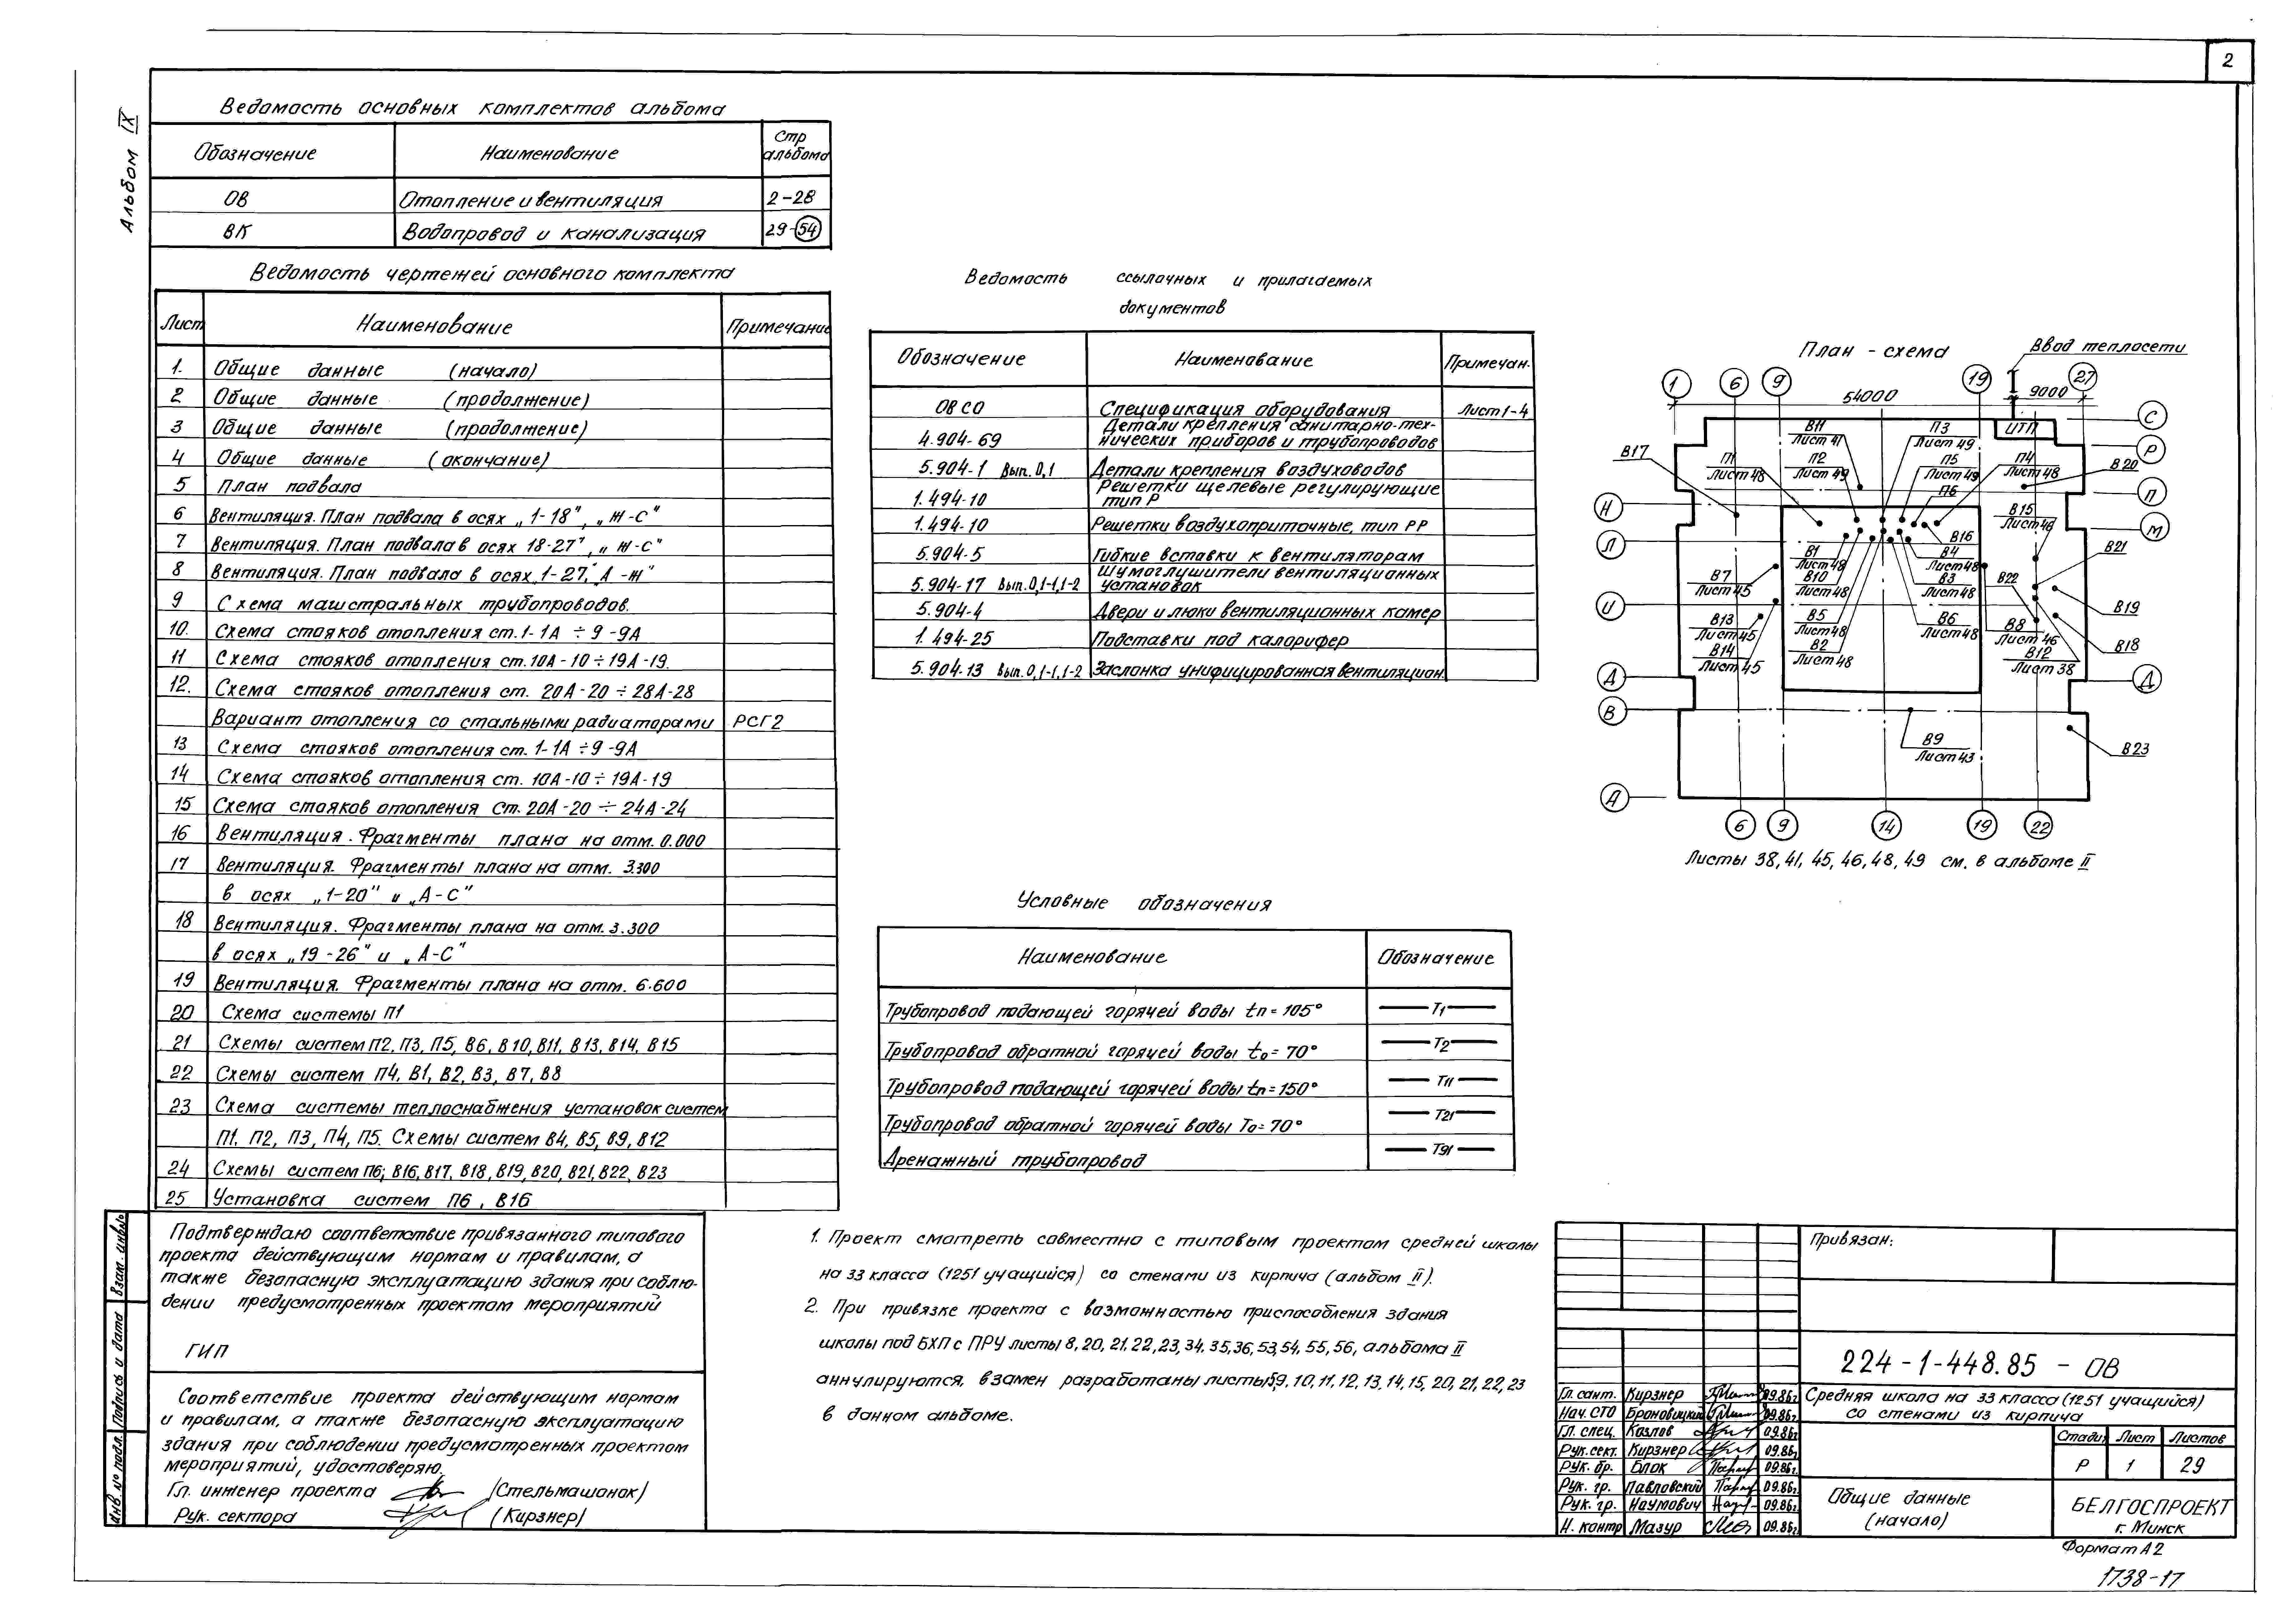 2
Альбом IX
Ведомость основных комплектов альбома
Обозначение Наименование Стр альбома
ОВ Отопление и вентиляция 2-28
ВК Водопровод и канализация 29-54
Ведомость чертежей основного комплекта
Лист Наименование Примечание
1. Общие данные (начало)
2 Общие данные (продолжение)
3 Общие данные (продолжение)
4 Общие данные (окончание)
5 План подвала
6 Вентиляция. План подвала в осях „1-18", „Ж-С"
7 Вентиляция. План подвала в осях 18-27", „Ж-С"
8 Вентиляция. План подвала в осях „1-27," А-Ж"
9 Схема магистральных трубопроводов.
10. Схема стояков отопления ст. 1-1А ÷ 9-9А
11 Схема стояков отопления ст. 10А-10 ÷ 19А-19.
12. Схема стояков отопления ст. 20А-20 ÷ 28А-28
Вариант отопления со стальными радиаторами РСГ2
13 Схема стояков отопления ст. 1-1А ÷ 9-9А
14 Схема стояков отопления ст. 10А-10 ÷ 19А-19
15 Схема стояков отопления ст. 20А-20 ÷ 24А-24
16 Вентиляция. Фрагменты плана на отм. 0.000
17 Вентиляция. Фрагменты плана на отм. 3.300
в осях „1-20" и „А-С"
18 Вентиляция. Фрагменты плана на отм. 3.300
в осях „19-26" и „А-С"
19 Вентиляция. Фрагменты плана на отм. 6.600
20 Схема системы П1
21 Схемы систем П2, П3, П5, В6, В10, В11, В13, В14, В15
22 Схемы систем П4, В1, В2, В3, В7, В8
23 Схема системы теплоснабжения установок систем
П1, П2, П3, П4, П5. Схемы систем В4, В5, В9, В12
24 Схемы систем П6; В16, В17, В18, В19, В20, В21, В22, В23
25 Установка систем П6, В16
Ведомость ссылочных и прилагаемых
документов
Обозначение Наименование Примечан.
ОВ СО Спецификация оборудования Лист 1-4
4.904-69 Детали крепления санитарно-технических приборов и трубопроводов
5.904-1 Вып. 0,1 Детали крепления воздуховодов
1.494-10 Решетки щелевые регулирующие тип Р
1.494-10 Решетки воздухоприточные, тип РР
5.904-5 Гибкие вставки к вентиляторам
5.904-17 Вып. 0,1-1,1-2 Шумоглушители вентиляционных установок
5.904-4 Двери и люки вентиляционных камер
1.494-25 Подставки под калорифер
5.904-13 Вып. 0,1-1,1-2 Заслонка унифицированная вентиляцион.
План - схема
Ввод теплосети
1 6 9 19 27
54000 9000
С
Р
П
М
Д
Н
Л
И
Д
В
А
ИТП
В11
Лист 41
П3
Лист 49
В17
П1
Лист 48
П2
Лист 49
П5
Лист 49
П4
Лист 48
В20
П6
В15
Лист 46
В16
В21
В1
Лист 48
В4
Лист 48
В7
Лист 45
В10
Лист 48
В3
Лист 48
В22
В19
В13
Лист 45
В5
Лист 48
В6
Лист 48
В8
Лист 46
В18
В14
Лист 45
В2
Лист 48
В12
Лист 38
В9
Лист 43
В23
6 9 14 19 22
Листы 38, 41, 45, 46, 48, 49 см. в альбоме II
Условные обозначения
Наименование Обозначение
Трубопровод подающей горячей воды tп = 105° Т1
Трубопровод обратной горячей воды tо = 70° Т2
Трубопровод подающей горячей воды tп = 150° Т11
Трубопровод обратной горячей воды То = 70° Т21
Дренажный трубопровод Т91
Подтверждаю соответствие привязанного типового
проекта действующим нормам и правилам, а
также безопасную эксплуатацию здания при соблю-
дении предусмотренных проектом мероприятий
ГИП
Соответствие проекта действующим нормам
и правилам, а также безопасную эксплуатацию
здания при соблюдении предусмотренных проектом
мероприятий, удостоверяю.
Гл. инженер проекта /Стельмашонок/
Рук. сектора (Кирзнер)
1. Проект смотреть совместно с типовым проектом средней школы
на 33 класса (1251 учащийся) со стенами из кирпича (альбом II).
2. При привязке проекта с возможностью приспособления здания
школы под БХП с ПРУ листы 8, 20, 21, 22, 23, 34, 35, 36, 53, 54, 55, 56, альбома II
аннулируются, взамен разработаны листы 5, 9, 10, 11, 12, 13, 14, 15, 20, 21, 22, 23
в данном альбоме.
Взам. инв.№
Подпись и дата
Инв. № подл.
Привязан:
224-1-448.85 - ОВ
Средняя школа на 33 класса (1251 учащийся)
со стенами из кирпича
Гл. сант. Кирзнер 09.86г
Нач. СТО Броновицкий 09.86г
Гл. спец. Козлов 09.86г
Рук. сект. Кирзнер 09.86г
Рук. бр. Блок 09.86г
Рук. гр. Павловский 09.86г
Рук. гр. Наумович 09.86г
Н. контр Мазур 09.86г
Стадия Лист Листов
Р 1 29
Общие данные
(начало)
БЕЛГОСПРОЕКТ
г. Минск
Формат А2
1738-17